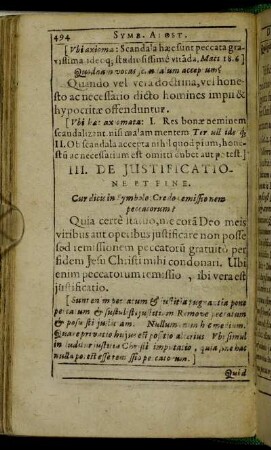 494 SYMB. APOST.
[Vbi axioma: Scandala hæc sunt peccata gra-
vissima ideoq; studiosissimè vitāda, Matt 18.6]
Quodnam vocas scandalum acceptum?
Quando vel vera doctrina, vel hone-
sto ac necessario dicto homines impii &
hypocritæ offenduntur.
[Vbi hæc axiomata: I. Res bonæ neminem
scandalizant nisi malam mentem Ter.
II. Ob scandala accepta nihil quod pium, hone-
stū ac necessarium est omitti debet aut potest.]
III. DE JUSTIFICATIO-
NE ET FINE.
Cur dicis in Symbolo, Credo remissionem
peccatorum?
Quia certè statuo, me corā Deo meis
viribus aut operibus justificare non posse
sed remissionem peccatorū gratuitò per
fidem Jesu Christi mihi condonari. Ubi
enim peccatorum remissio, ibi vera est
justificatio.
[Sunt enim peccatum & justitia pugnantia pone
peccatum & sustulisti justitiam Remove peccatum
& posuisti justitiam. Nullum enim hic medium.
Quare privatio hujus est positio alterius Vbi simul in-
cluditur justitiæ Christi imputatio, quia sine hac
nulla potest esse remissio peccatorum.]
Quid